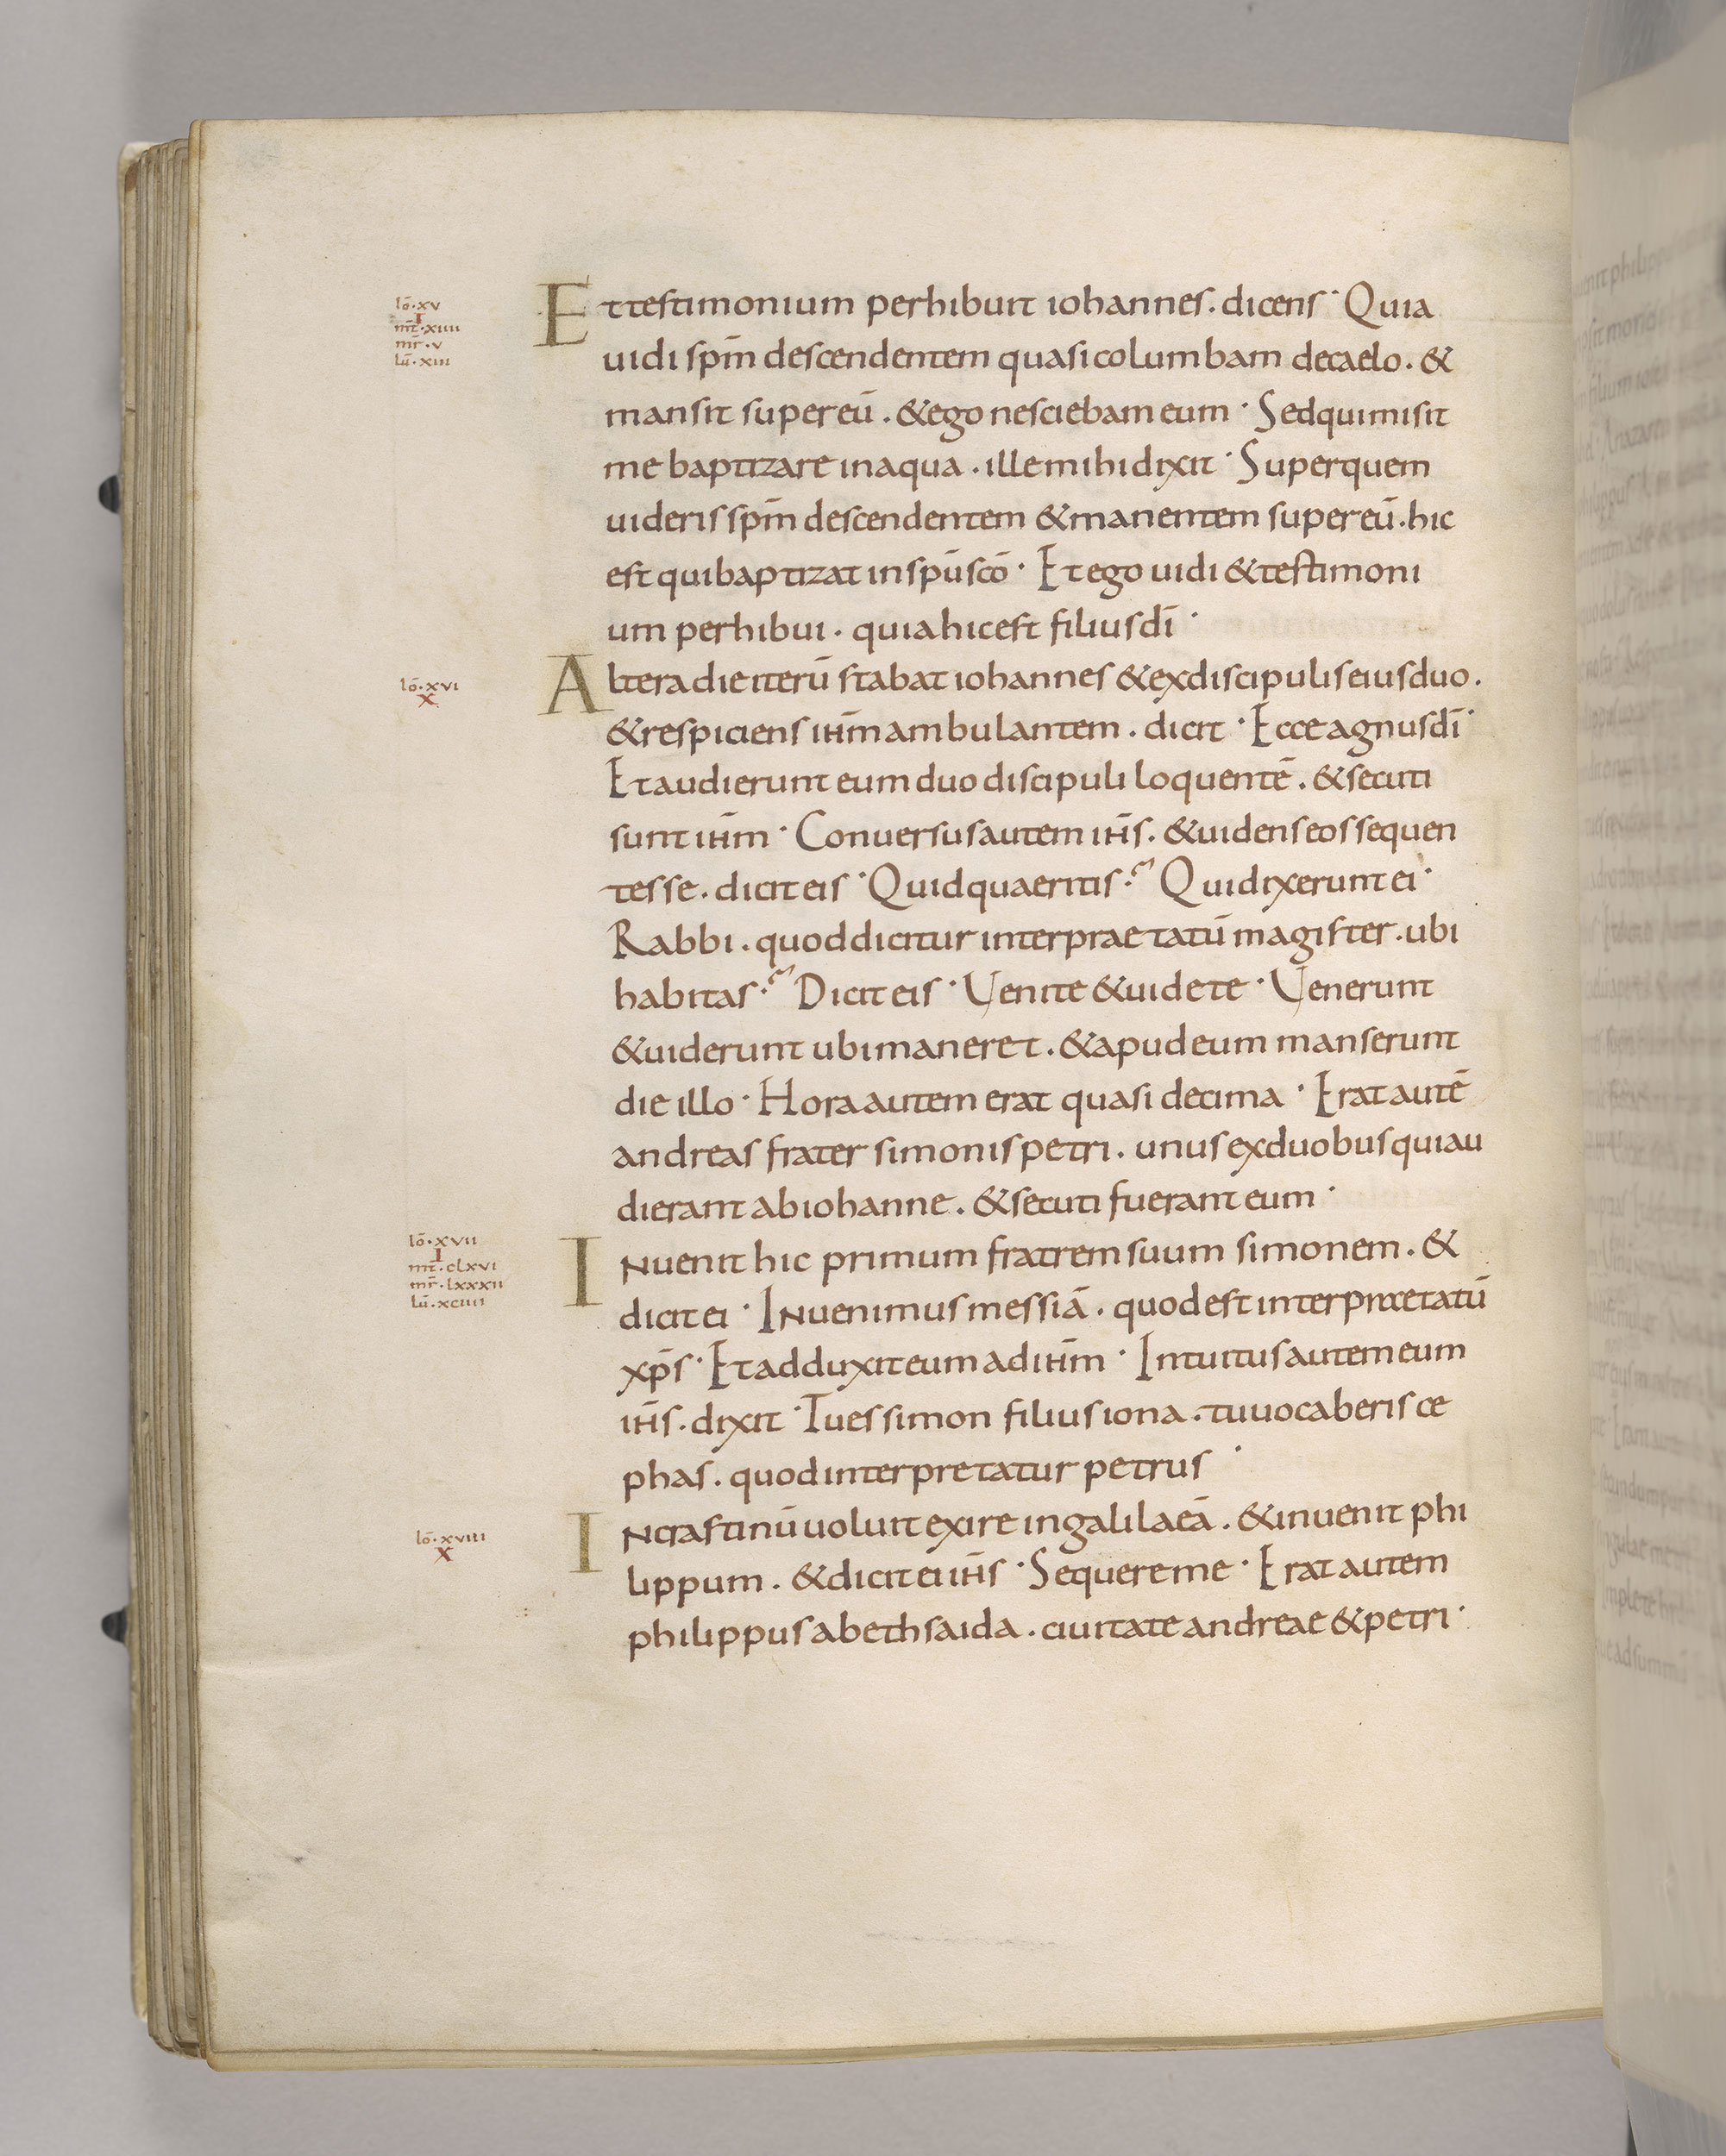 lō·xv
I
mt̄·xiiii
mr̄·v
lū·xiii
Et testimonium perhibuit iohannes. dicens· Quia
uidi spm̄ descendentem quasi columbam decaelo. &
mansit super eū. & ego nesciebam eum· Sed qui misit
me baptizare in aqua. ille mihi dixit· Super quem
uideris spm̄ descendentem & manentem super eū. hic
est qui baptizat in spū scō· Et ego uidi & testimoni
um perhibui. quia hic est filius dī·
lō·xvi
x
Altera die iterū stabat iohannes & ex discipulis eius duo.
& respiciens ihm̄ ambulantem. dicit· Ecce agnus dī·
Et audierunt eum duo discipuli loquentē. & secuti
sunt ihm̄· Conuersus autem ihs̄. & uidens eos sequen
tes se. dicit eis· Quid quaeritis? Qui dixerunt ei·
Rabbi. quod dicitur interpraetatū magister. ubi
habitas? Dicit eis· Uenite & uidete· Uenerunt
& uiderunt ubi maneret. & apud eum manserunt
die illo· Hora autem erat quasi decima· Erat autē
andreas frater simonis petri. unus ex duobus qui au
dierant ab iohanne. & secuti fuerant eum·
lō·xvii
I
mt̄·clxvi
mr̄·lxxxii
lū·xciiii
Inuenit hic primum fratrem suum simonem. &
dicit ei· Inuenimus messiā. quod est interpraetatū
xps̄· Et adduxit eum ad ihm̄· Intuitus autem eum
ihs̄. dixit· Tu es simon filius iona. tu uocaberis ce
phas. quod interpretatur petrus·
lō·xviii
x
In crastinū uoluit exire in galilaeā. & inuenit phi
lippum. & dicit ei ihs̄· Sequere me· Erat autem
philippus a bethsaida. ciuitate andreae & petri·